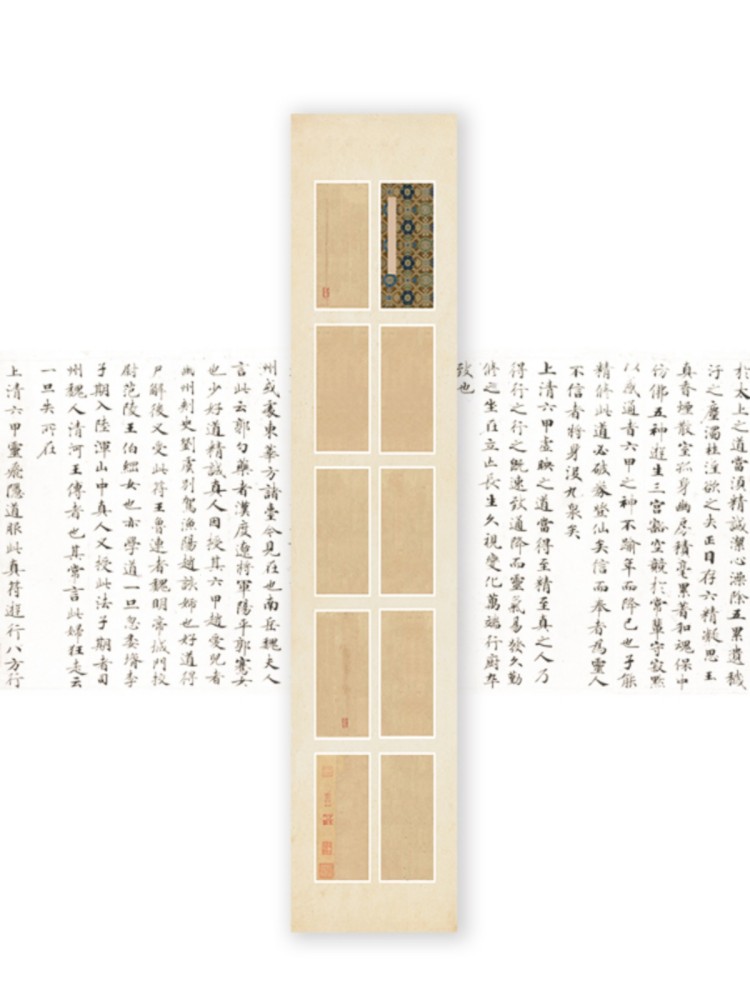 於太上之道當須精誠潔心澡除五累遺穢
汙之塵濁杜淫欲之失正目存六精凝思玉
真香煙散室孤身幽房積毫累著和魂保中
仿佛五神遊生三宮豁空競於常輩守寂默
以感道者六甲之神不踰年而降己也子能
精修此道必破券登仙矣信而奉者為靈人
不信者將身沒九泉矣
上清六甲虛映之道當得至精至真之人乃
得行之行之既速致通降而靈氣易發久勤
修之坐在立亡長生久視變化萬端行廚卒
致也
州或處東華方諸臺今見在也南岳魏夫人
言此云郭勺藥者漢度遼將軍陽平郭騫女
也少好道精誠真人因授其六甲趙愛兒者
幽州刺史劉虞別駕漁陽趙該姊也好道得
尸解後又受此符王魯連者魏明帝城門校
尉范陵王伯綱女也亦學道一旦忽委壻李
子期入陸渾山中真人又授此法子期者司
州魏人清河王傳者也其常言此婦狂走云
一旦失所在
上清六甲靈飛隱道服此真符遊行八方行